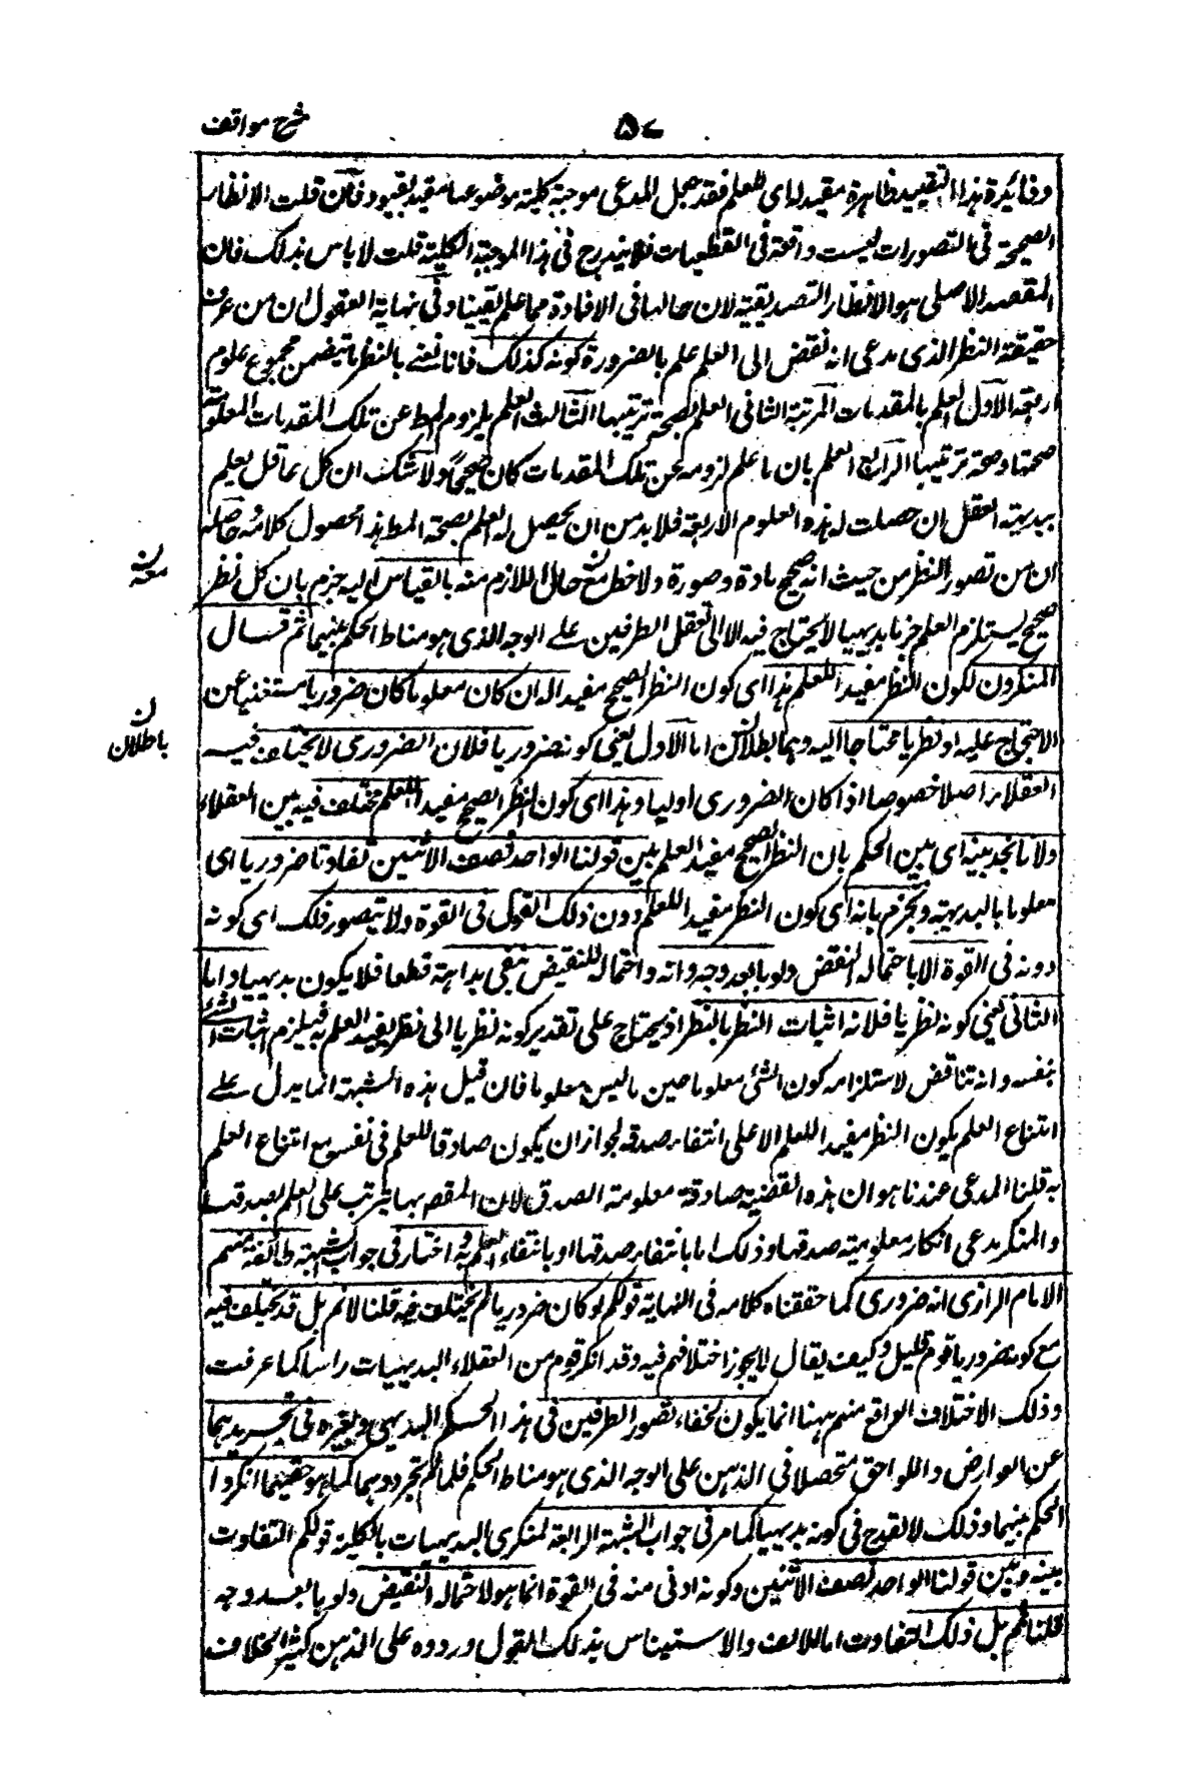 شرح مواقف
۵۷
وفائدة هذا التقييد ظاهرة مفيد له اى للعلم فقد جعل المدعى موجبة كلية موضوعها مقيد بقيود فان قلت الانظار
الصحيحة فى التصورات ليست واقعة فى القطعيات فلا يندرج فى هذا الموجبة الكلية قلت لا باس بذلك فان
المقصد الاصلى هو الانظار التصديقية لان حالها فى الافادة مما علم يقينا وفى نهاية العقول ان من عرف
حقيقة النظر الذى ندعى انه نفض الى العلم علم بالضرورة كونه كذلك فانا نعنى بالنظر ما يتضمن مجموع علوم
اربعة الاول العلم بالمقدمات المرتبة الثانى العلم بصحة ترتيبها الثالث العلم بلزوم المط عن تلك المقدمات المعلومة
صحتها وصحة ترتيبها الرابع العلم بان ما علم لزومه عن تلك المقدمات كان صحيحا ولا شك ان كل عاقل يعلم
ببديهة العقل ان حصلت له هذه العلوم الاربعة فلا بد من ان يحصل له العلم بصحة المط هذا محصول كلامه وحاصله
ان من تصور النظر من حيث انه صحيح مادة وصورة ولاحظ مع حال اللازم منه بالقياس اليه جزم بان كل نظر
معه
صحيح يستلزم العلم جزما بديهيا لا يحتاج فيه الا الى تعقل الطرفين على الوجه الذى هو مناط الحكم بينهما ثم قال
المنكرون لكون النظر مفيدا للعلم هذا اى كون النظر الصحيح مفيدا له ان كان معلوما كان ضروريا مستغنيا عن
الاحتجاج عليه او نظريا محتاجا اليه وهما بطلان اما الاول يعنى كونه ضروريا فلان الضرورى لا يختلف فيه
باطلان
العقلاء اصلا خصوصا اذا كان الضرورى اوليا وهذا اى كون النظر الصحيح مفيدا للعلم مختلف فيه بين العقلاء
ولانا نجد بينه اى بين الحكم بان النظر الصحيح مفيد للعلم وبين قولنا الواحد نصف الاثنين تفاوتا ضروريا اى
معلوما بالبديهة ونجزم بانه اى كون النظر مفيدا للعلم دون ذلك القول فى القوة ولا يتصور ذلك اى كونه
دونه فى القوة الا باحتماله للنقيض ولو بابعد وجه وانه واحتماله للنقيض ينفى بداهته قطعا فلا يكون بديهيا واما
الثانى يعنى كونه نظريا فلانه اثبات النظر بالنظر اذ يحتاج على تقدير كونه نظريا الى نظر يفيد العلم به فيلزم اثبات الشئ
بنفسه وانه تناقض لاستلزامه كون الشئ معلوما حين ما ليس معلوما فان قيل هذه الشبهة انما يدل على
امتناع العلم بكون النظر مفيدا للعلم لا على انتفاء صدقه لجواز ان يكون صادقا للعلم فى نفسه مع امتناع العلم
به قلنا المدعى عندنا هو ان هذه القضية صادقة معلومة الصدق لان المقصد بها يترتب على العلم بصدقها
والمنكر يدعى انكار معلومية صدقها وذلك اما بانتفاء صدقها او بانتفاء العلم به واختار فى جواب الشبهة طائفة منهم
الامام الرازى انه ضرورى كما حققناه كلامه فى النهاية قولكم لو كان ضروريا لم يختلف فيه قلنا لا نم بل قد يختلف فيه
مع كونه ضروريا قوم قليل وكيف يقال لا يجوز اختلافهم فيه وقد انكر قوم من العقلاء البديهيات راسا كما عرفت
وذلك الاختلاف الواقع منهم ههنا انما يكون لخفاء تصور الطرفين فى هذا الحكم البديهى ولعسره فى تجريدهما
عن العوارض واللواحق متحصلا فى الذهن على الوجه الذى هو مناط الحكم فلما لم يجردوهما كما هو حقيهما انكروا
الحكم بينهما وذلك لا يقدح فى كونه بديهيا كما مر فى جواب الشبهة الرابعة لمنكرى البديهيات بالكلية قولكم التفاوت
بينه وبين قولنا الواحد نصف الاثنين وكونه ادنى منه فى القوة انما هو لاحتماله النقيض ولو بابعد وجه
قلنا نم بل ذلك التفاوت اما للالف والاستيناس بذلك القول ووروده على الذهن كثيرا بخلاف